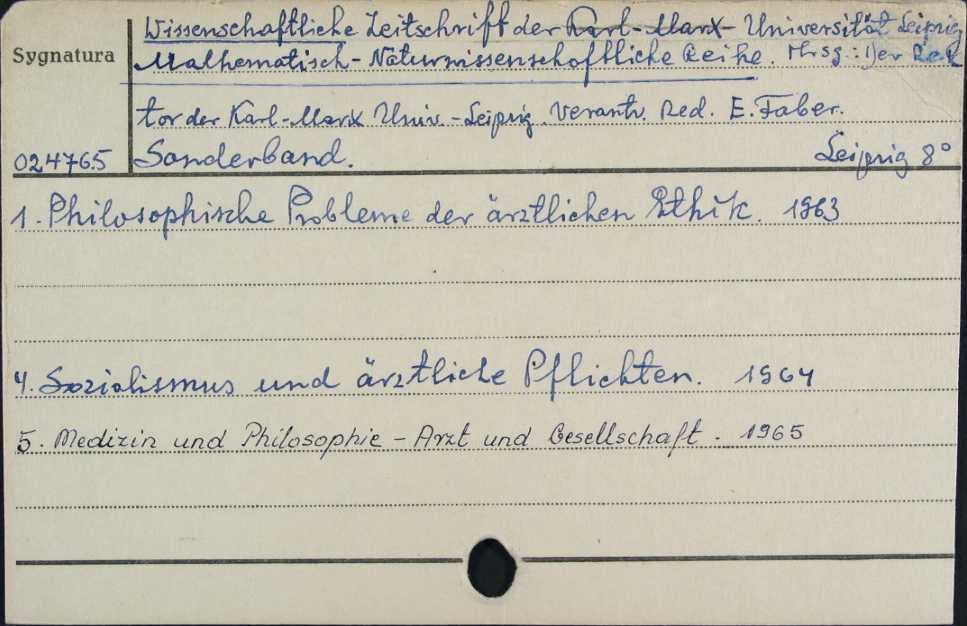 Wissenschaftliche Zeitschrift der Karl-Marx-Universität Leipzig
Sygnatura
Mathematisch-Naturwissenschaftliche Reihe. Hrsg.: Der Rek
tor der Karl-Marx Univ.-Leipzig. Verantw. Red. E. Faber.
024765 Sonderband. Leipzig 8°
1. Philosophische Probleme der ärztlichen Ethik. 1963
4. Sozialismus und ärztliche Pflichten. 1964
5. Medizin und Philosophie - Arzt und Gesellschaft. 1965